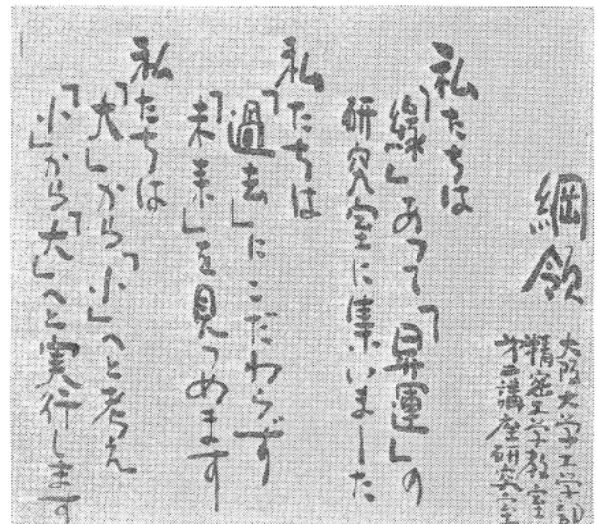 綱領
大阪大学工学部
精密工学教室
講座研究室
私たちは
「縁」あって「昇運」の
研究室に集いました
私たちは
「過去」にこだわらず
「未来」を見つめます
私たちは
「大」から「小」へと考え
「小」から「大」へと実行します